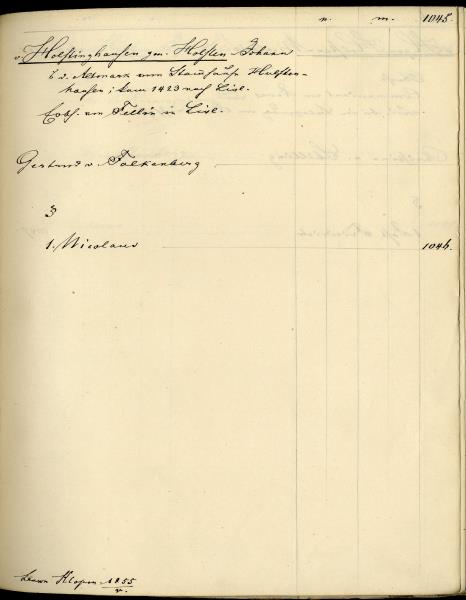 v. m. 1045.
v. Holstinghausen gen. Holsten Johann
a. d. Altmark vom Stammhause Hulsten-
hausen; kam 1423 nach Livl.
Erbh. von Fellin in Livl.
Gertrud v. Falkenberg
3
1. Nicolaus 1046.
Klopm. 1855
v.